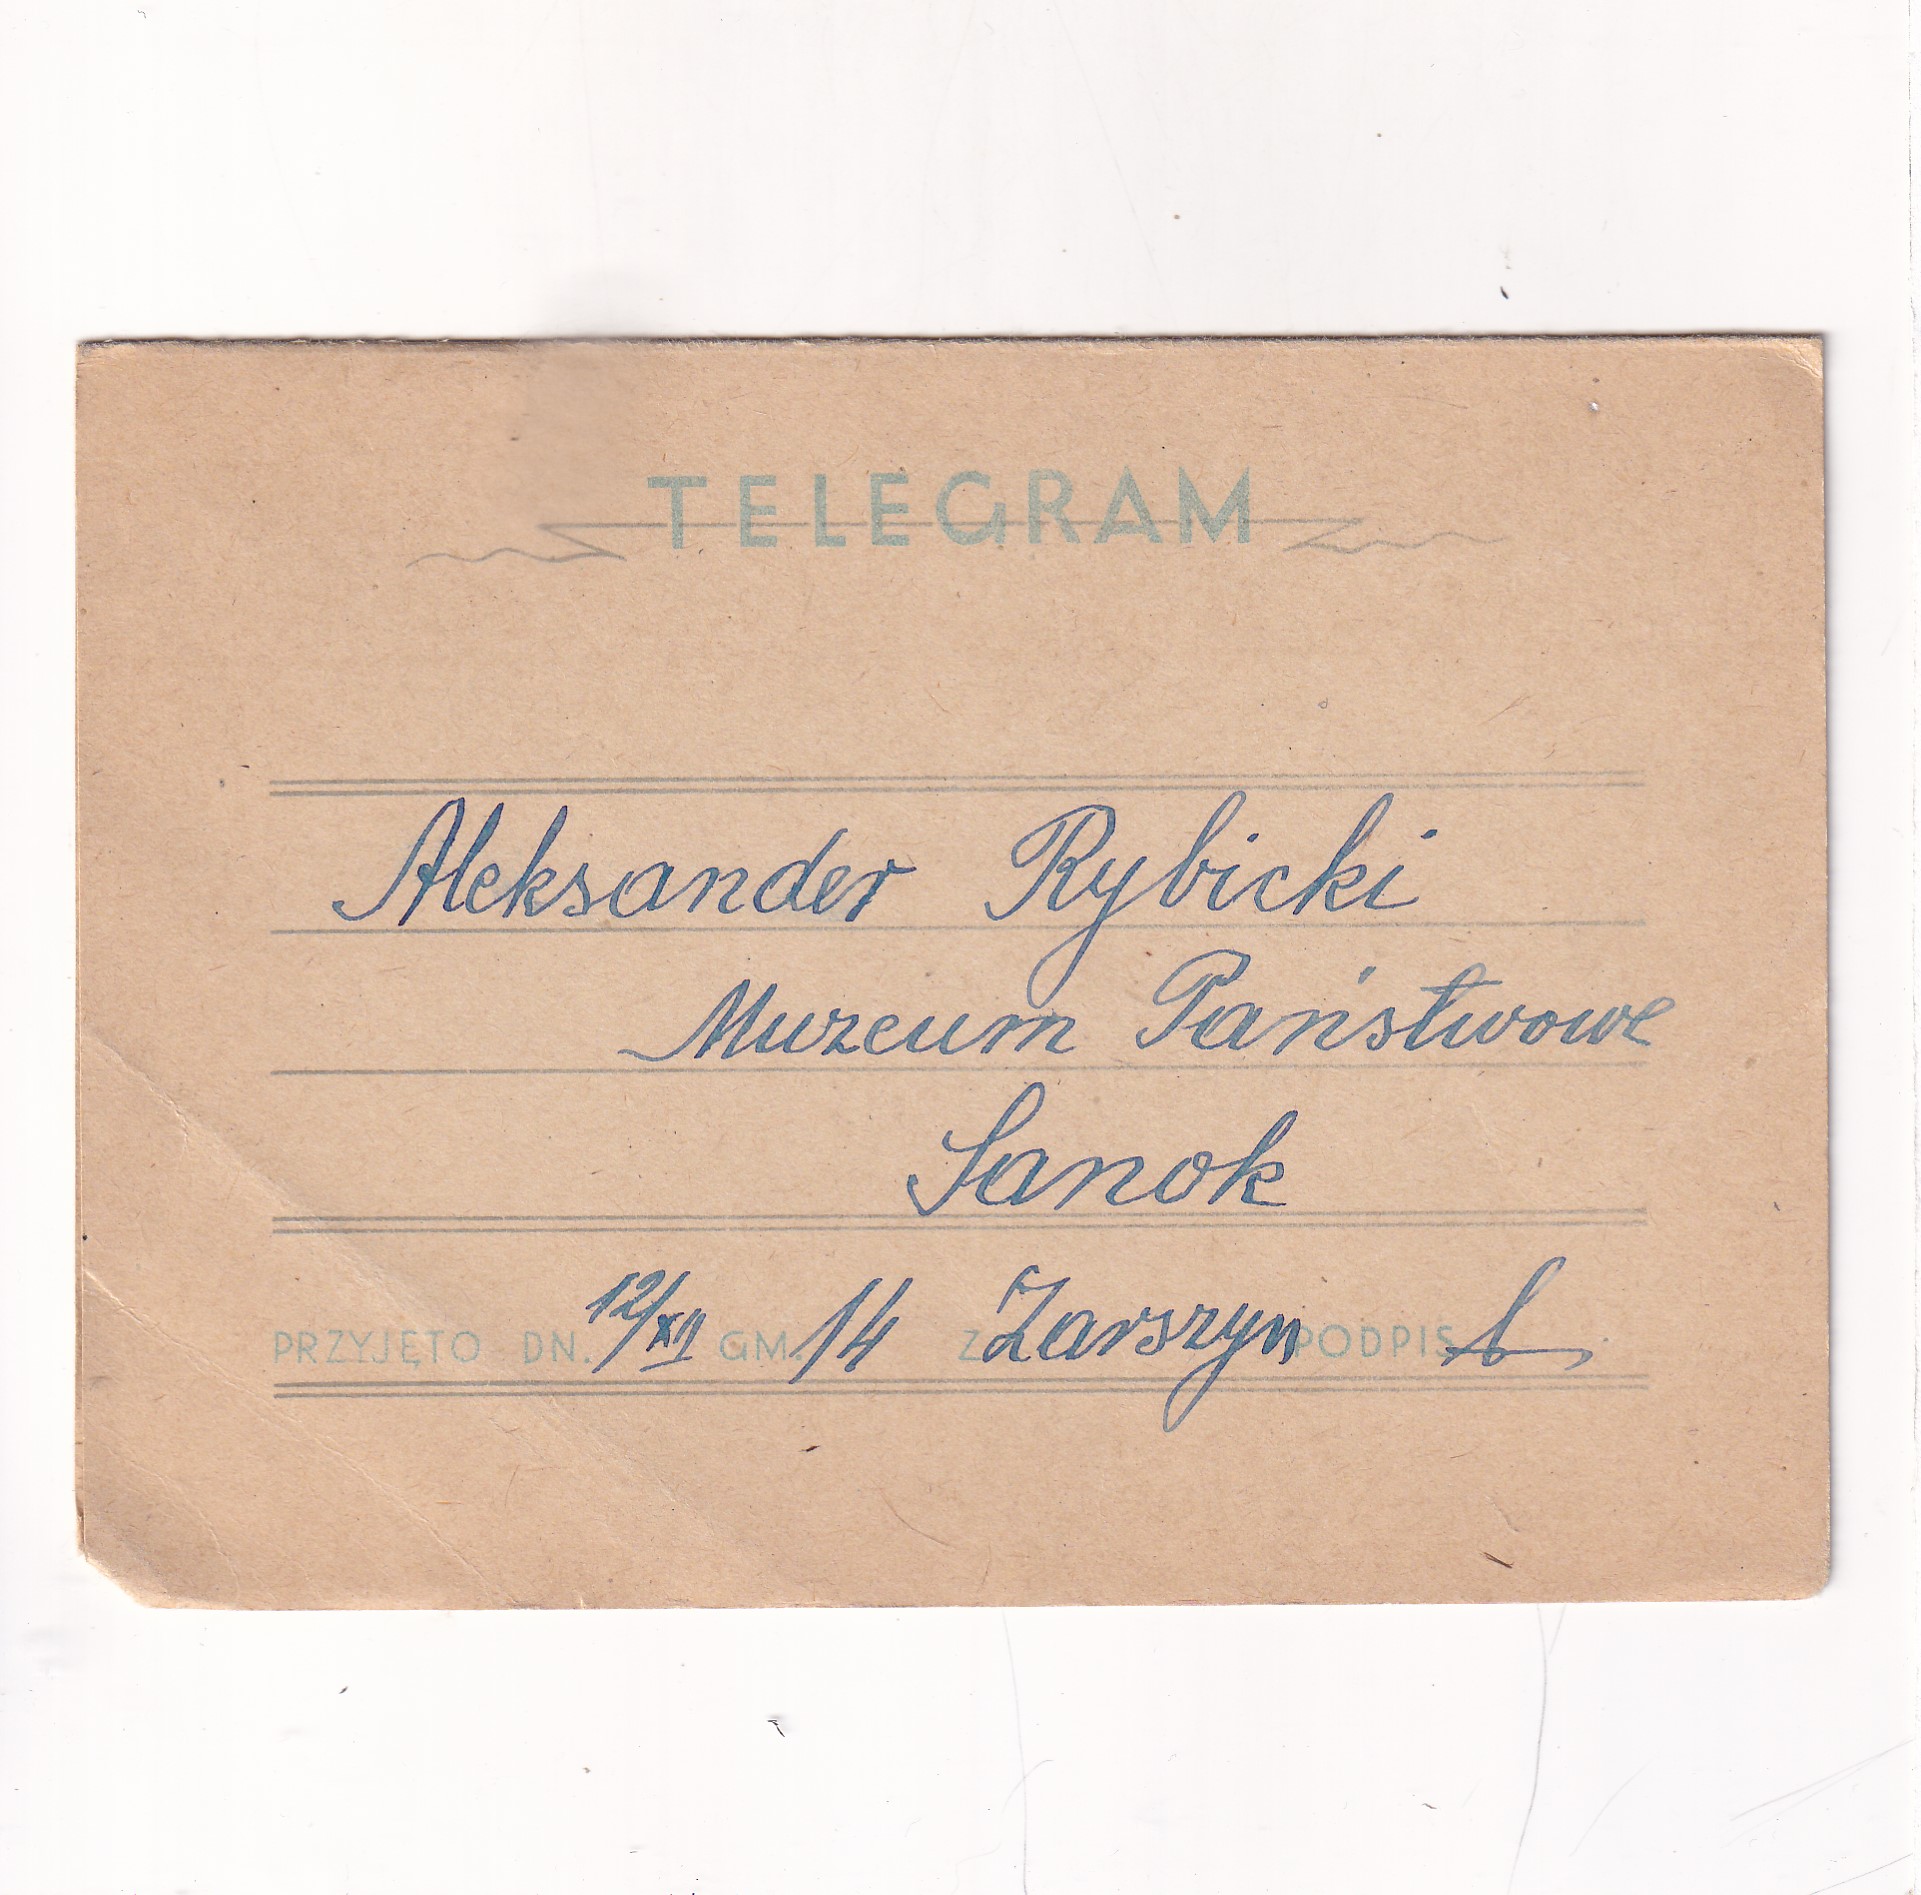 TELEGRAM
Aleksander Rybicki
Muzeum Państwowe
Sanok
PRZYJĘTO DN. 12/XI GM. 14 Z Zarszyn PODPIS